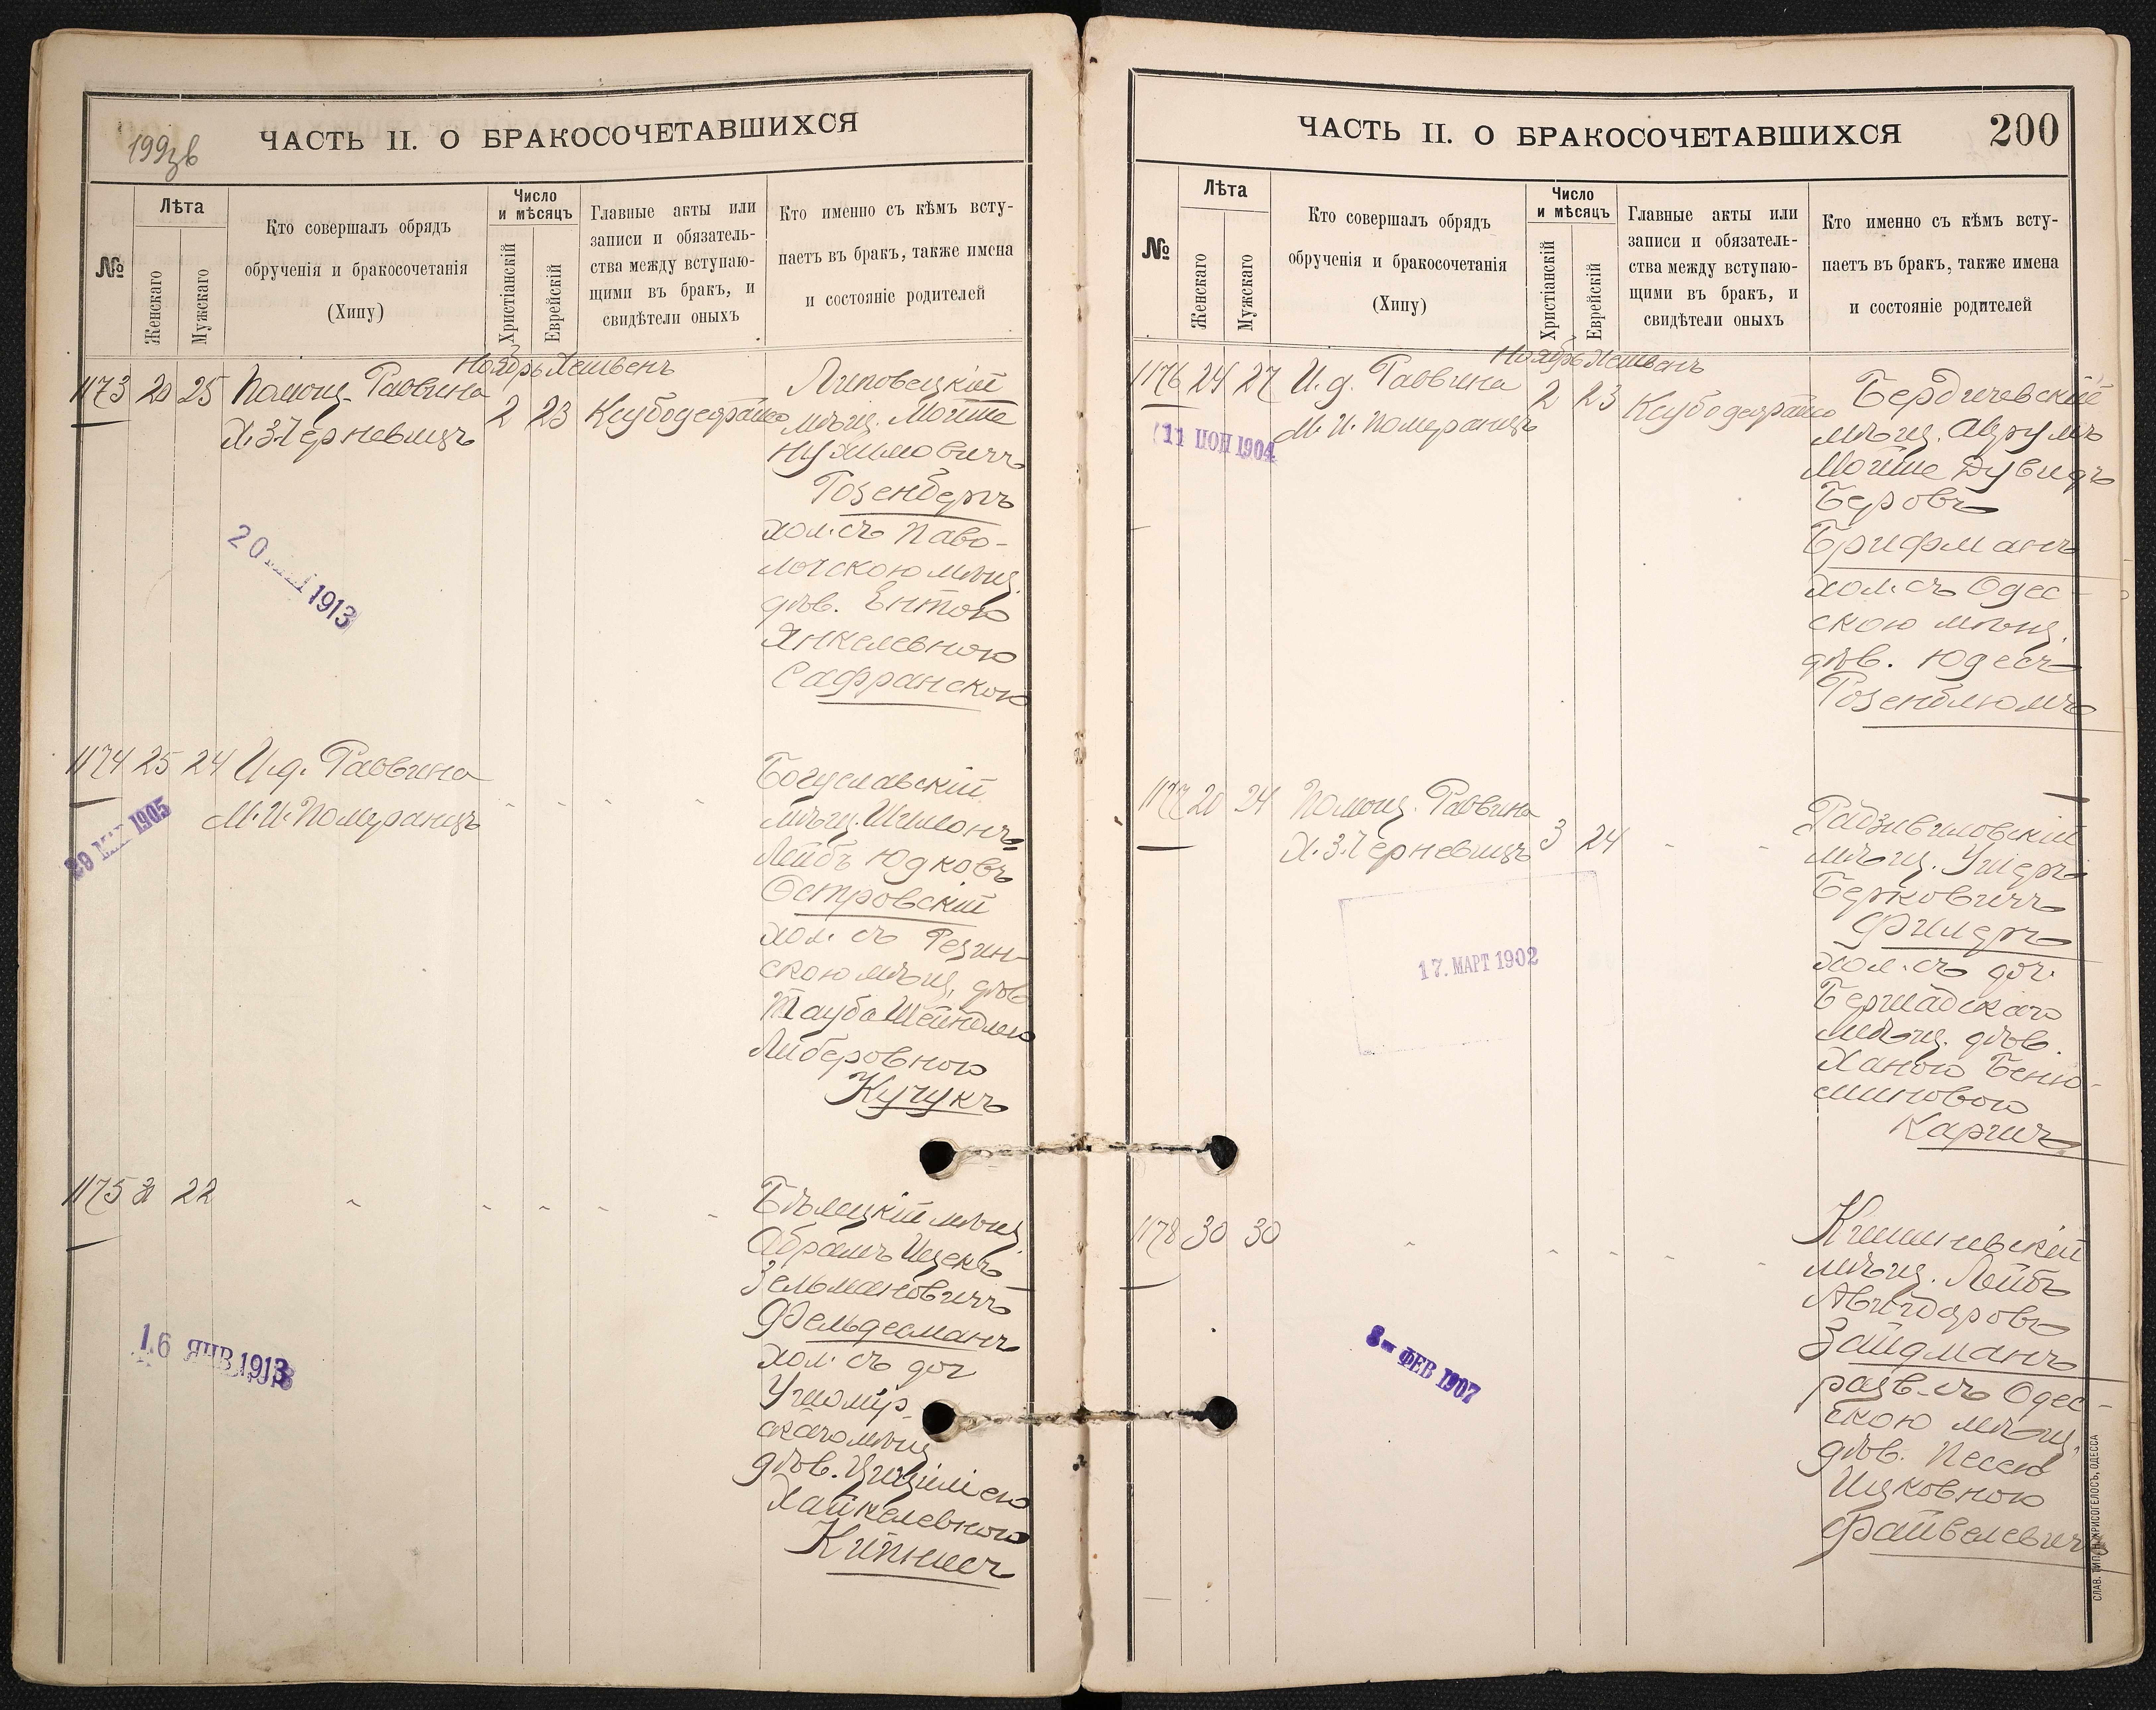 199
ЧАСТЬ II. О БРАКОСОЧЕТАВШИХСЯ
№
Лѣта
Женскаго
Мужскаго
Кто совершалъ обрядъ
обрученія и бракосочетанія
(Хипу)
Число
и мѣсяцъ
Христіанскій
Еврейскій
Главные акты или
записи и обязатель-
ства между вступаю-
щими въ бракъ, и
свидѣтели оныхъ
Кто именно съ кѣмъ всту-
паетъ въ бракъ, также имена
и состояніе родителей
Ноябрь Хешвенъ
1173 20 25 Помощ. Раввина
Х.З.Черневицъ
2 23 Ксубодеорайсо
Липовецкій
мѣщ. Мойше
Нухимовичъ
Розенбергъ
хол. съ Паво-
лочскою мѣщ.
дѣв. Ентою
Янкелевною
Сафранскою
1913
1174 25 24 И.д. Раввина
М.И.Померанецъ
1905
Богуславскій
мѣщ. Шимонъ
Лейбъ Юдковъ
Островскій
хол. съ Резин-
скою мѣщ. дѣв.
Таубо Шейндлею
Либеровною
Кучукъ
1175 22
Бѣлецкій мѣщ.
Абрамъ Ицекъ
Зельмановичъ
Фельдманъ
хол. съ доч
Ушомір-
скаго мѣщ
дѣв. Цициліею
Хайкелевною
Кипнисъ
16 ЯНВ 1913
ЧАСТЬ II. О БРАКОСОЧЕТАВШИХСЯ
200
№
Лѣта
Женскаго
Мужскаго
Кто совершалъ обрядъ
обрученія и бракосочетанія
(Хипу)
Число
и мѣсяцъ
Христіанскій
Еврейскій
Главные акты или
записи и обязатель-
ства между вступаю-
щими въ бракъ, и
свидѣтели оныхъ
Кто именно съ кѣмъ всту-
паетъ въ бракъ, также имена
и состояніе родителей
Ноябрь Хешвенъ
1176 24 27 И.д. Раввина
М.И.Померанецъ
2 23 Ксубодеорайсо
11 ИЮН 1904
Бердичевскій
мѣщ. Аврумъ
Мойше Дувидъ
Беровъ
Брифманъ
хол. съ Одес-
скою мѣщ.
дѣв. Юдесъ
Розенблюмъ
1177 20 24 Помощ. Раввина
Х.З.Черневицъ
3 24
17. МАРТ 1902
Радзивиловскій
мѣщ. Ушеръ
Берковичъ
Филеръ
хол. съ доч.
Бершадскаго
мѣщ. дѣв.
Ханою Беню-
миновою
Каричъ
1178 30 30
8- ФЕВ 1907
Кишиневскій
мѣщ. Лейбъ
Авигдоровъ
Зайдманъ
разв. съ Одес-
скою мѣщ.
дѣв. Песею
Ицковною
Файвелевичъ
СЛАВ. ТИП. Н. ХРИСОГЕЛОСЪ, ОДЕССА